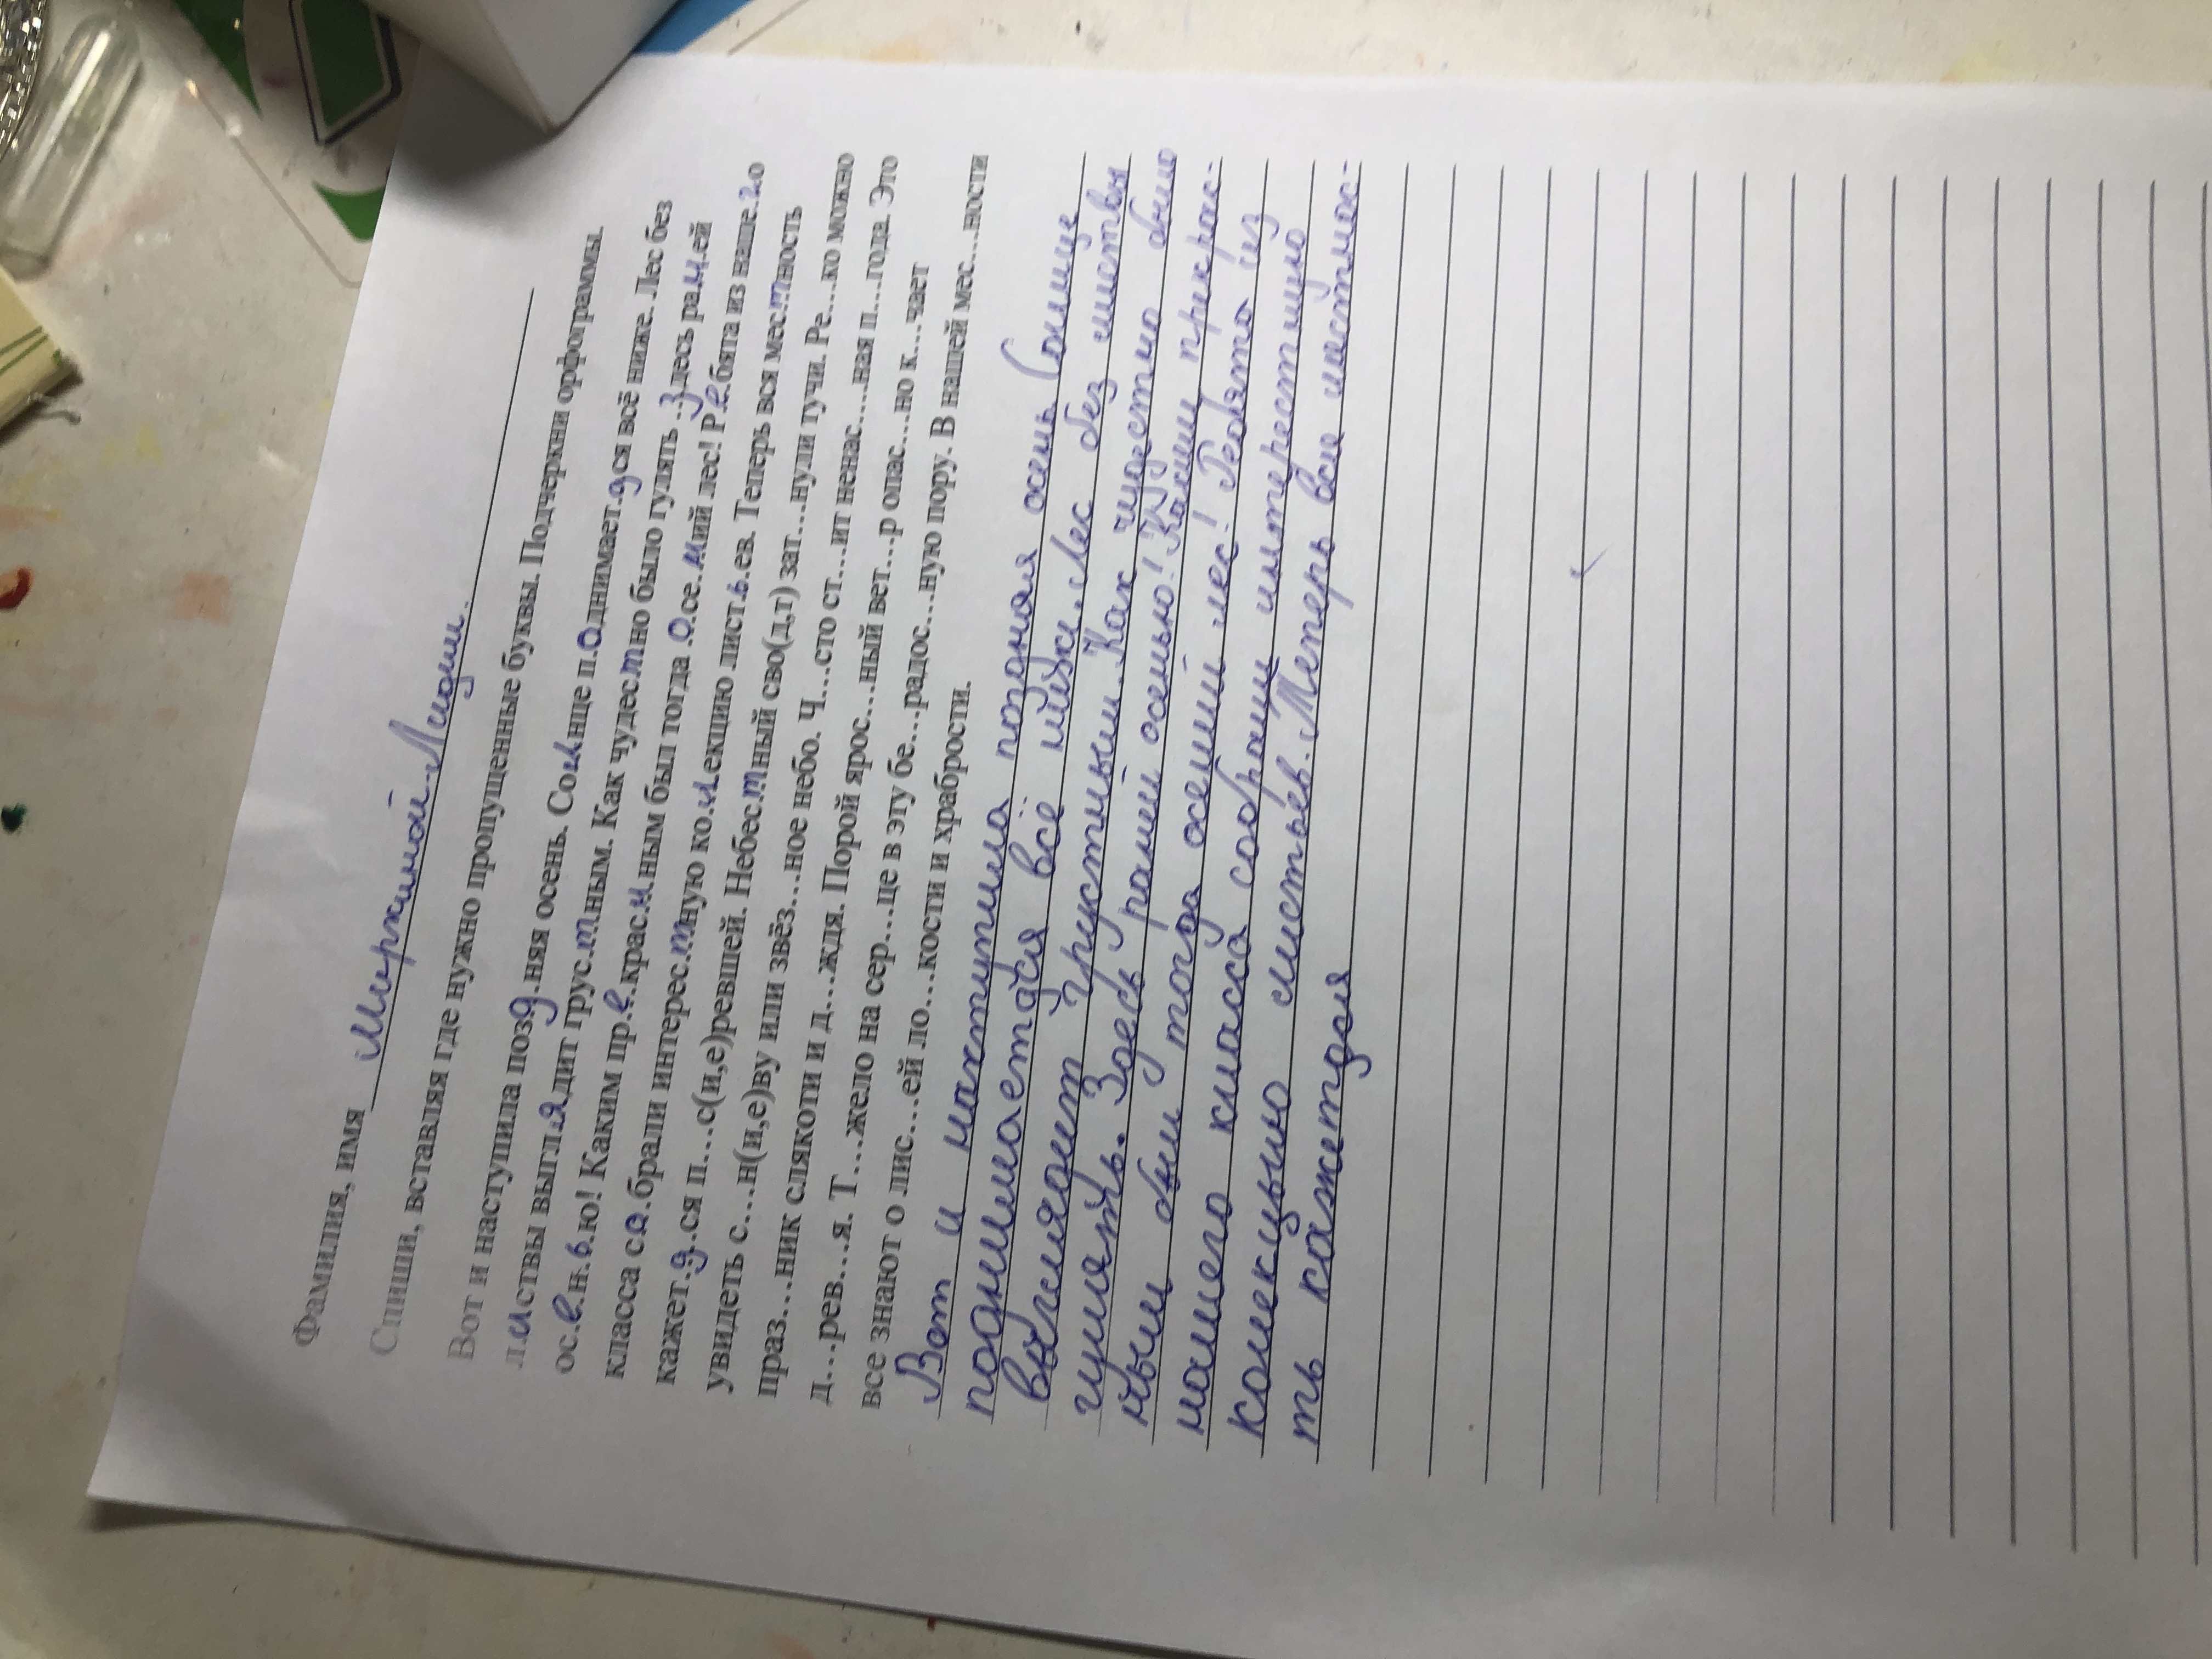 Фамилия, имя Миркиной Лидии.
Спиши, вставляя где нужно пропущенные буквы. Подчеркни орфограммы.
Вот и наступила позд.няя осень. Солнце п.однимает.дся всё ниже. Лес без
листвы выгл.ядит грус.тным. Как чудестно было гулять .Здесь ран.ей
ос.е.н.ь.ю! Каким пр.е.красн.ным был тогда .о.се.ний лес! Ре.бята из наше.го
класса со.брали интерес.тную ко.л.екцию лист.ь.ев. Теперь вся местность
кажет.д.ся п…с(и,е)ревшей. Небес.тный сво(д,т) зат…нули тучи. Ре…ко можно
увидеть с…н(и,е)ву или звёз…ное небо. Ч…сто ст…ит ненас….ная п…года. Это
праз…ник слякоти и д…ждя. Порой ярос…ный вет…р опас…но к…чает
д…рев…я. Т…жело на сер…це в эту бе…радос…ную пору. В нашей мес…ности
все знают о лис…ей ло…кости и храбрости.
Вот и наступила поздняя осень Сонце
поднимаетдся всё ниже. Лес без листвы
выглядит грустным. Как чудестно было
гулять. Здесь раней осенью! Каким прекрас-
ным был тогда осений лес! Ребята из
нашего класса собрали интерестную
колекцию листьев. Теперь вся местнос-
ть кажетдся